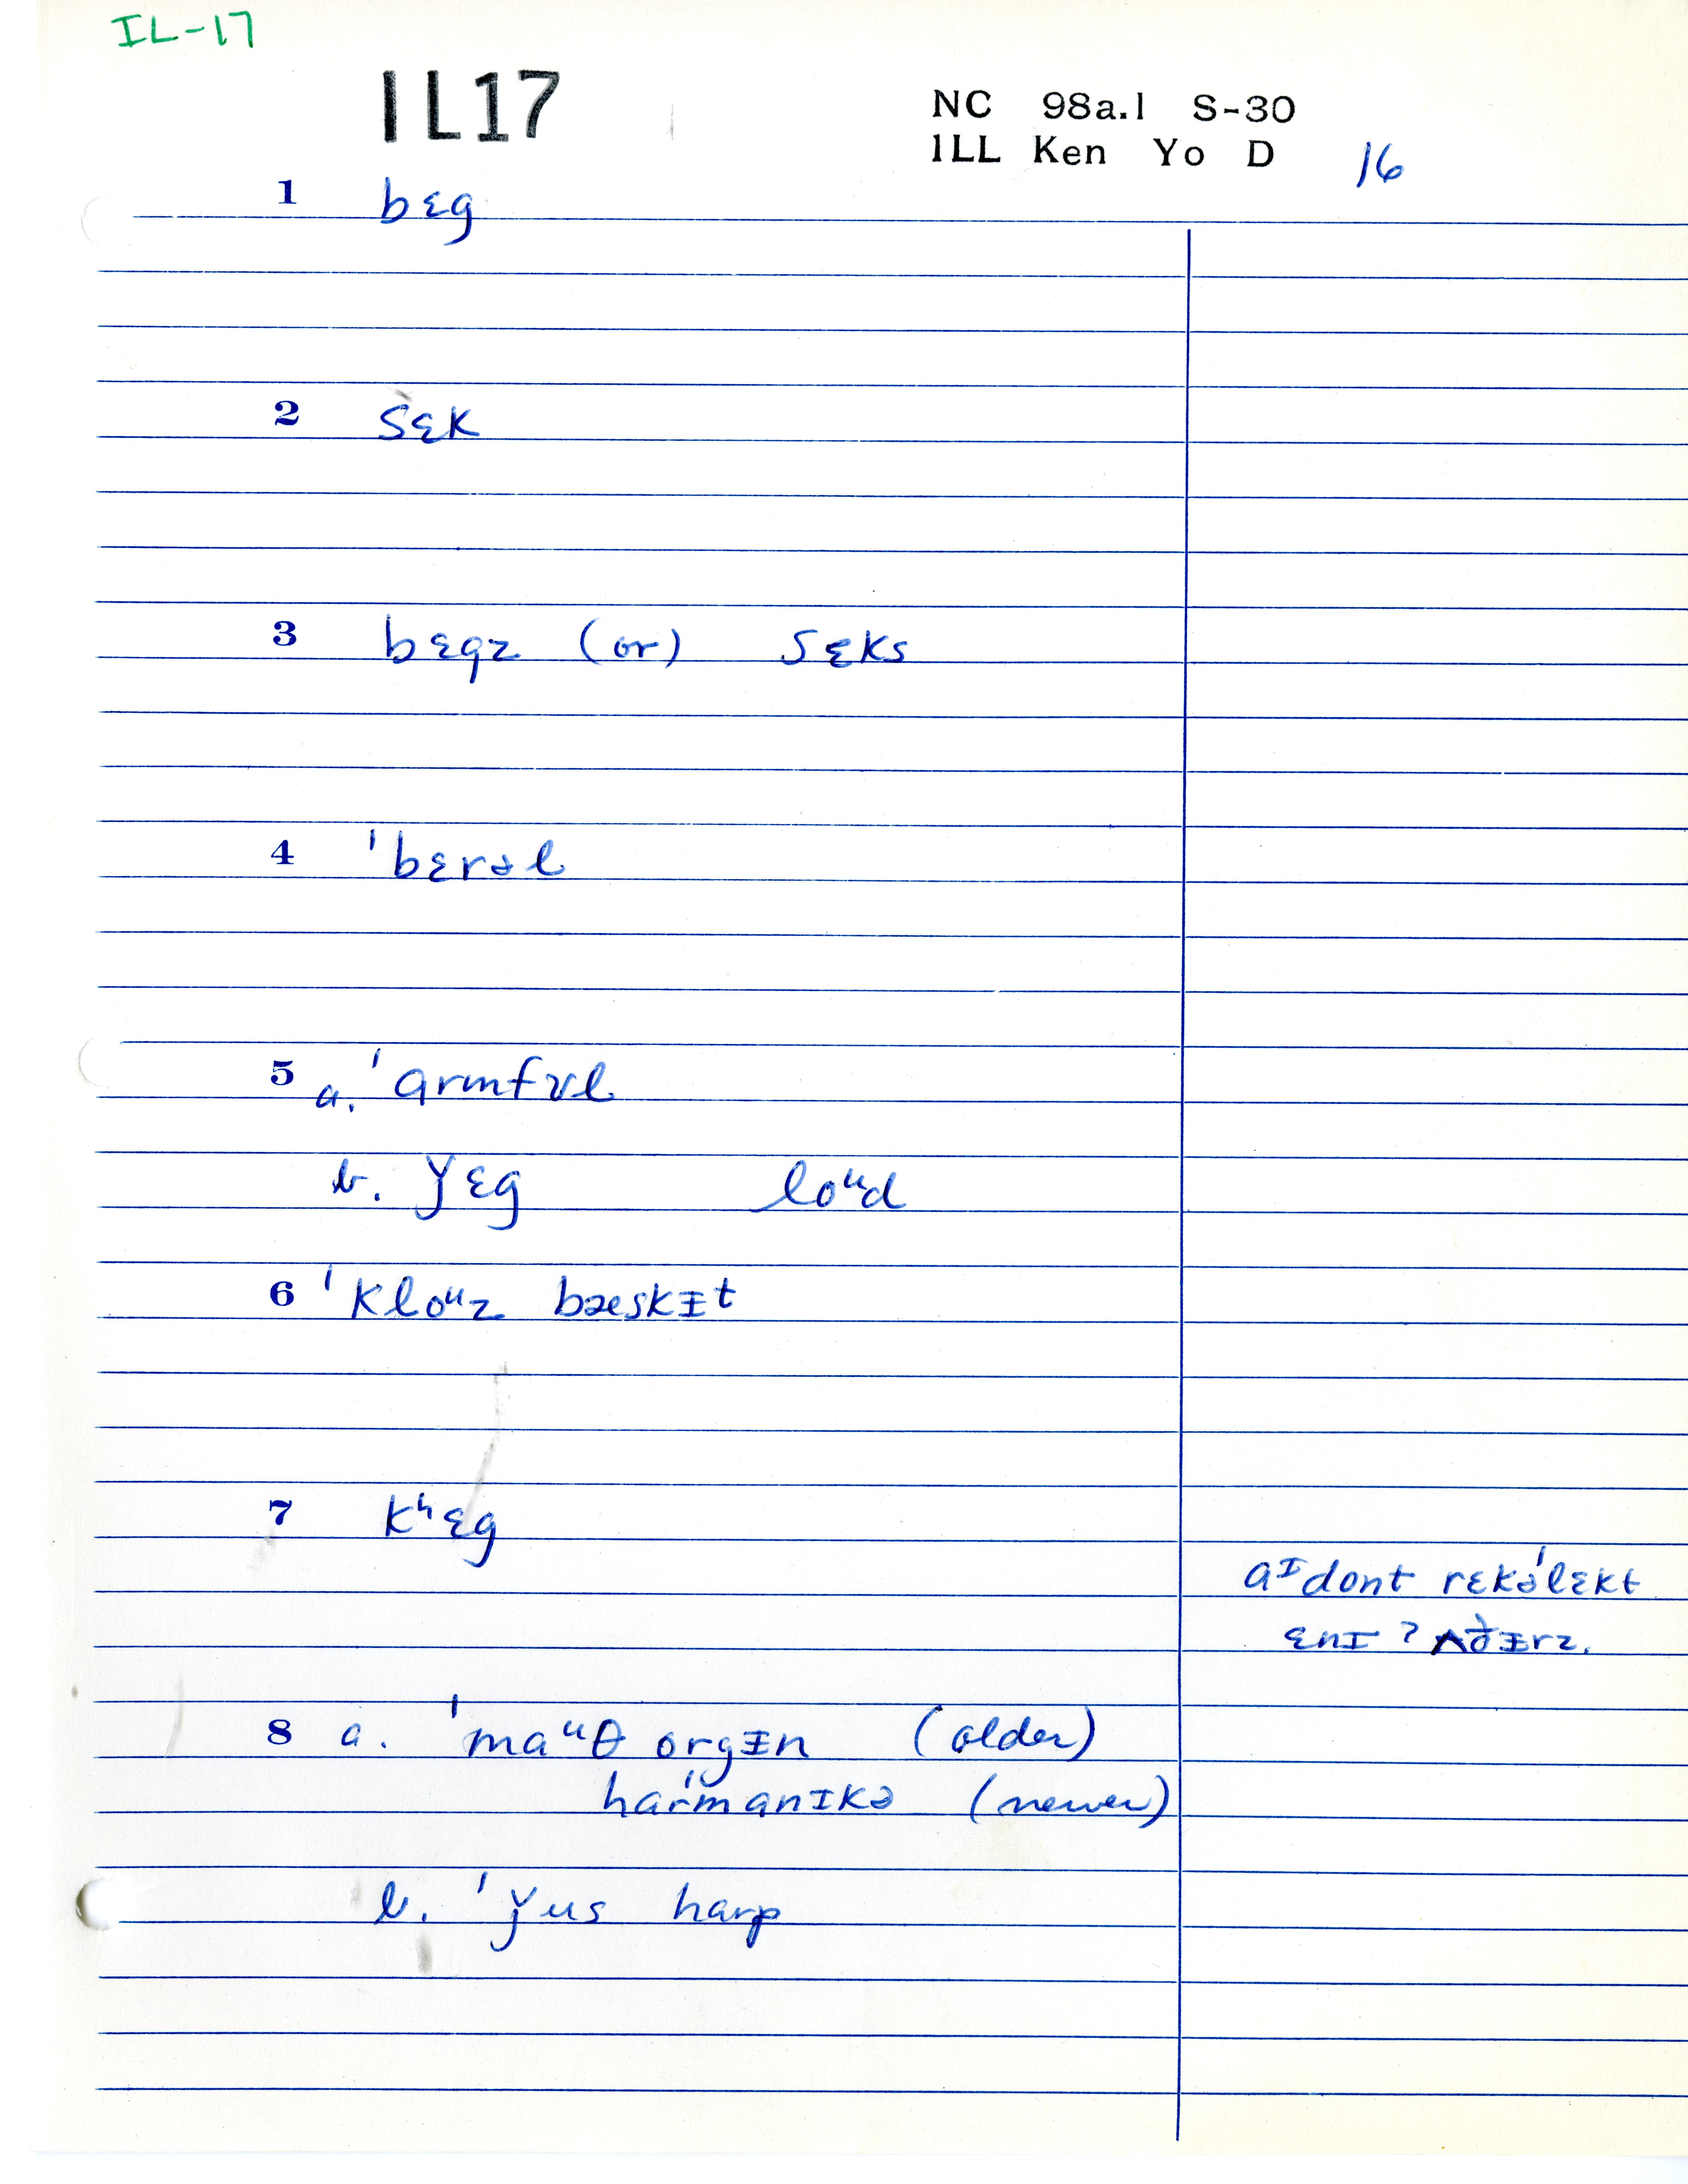 IL-17
IL17
NC 98a.1 S-30
ILL Ken Yo D 16
1 bɛg
2 sɛk
3 bɛgz (or) sɛks
4 ˈbɛrəl
5 a. ˈɑrmfʊl
b. ǰɛg loᵘd
6 ˈkloᵘz bæskɪt
7 kʰɛg
aᶦdont rɛkəˈlɛkt
ɛnɪ ʔʌðɪrz.
8 a. ˈmaᵘθ orgɪn (older)
harˈmanɪkə (newer)
b. ˈǰus harp